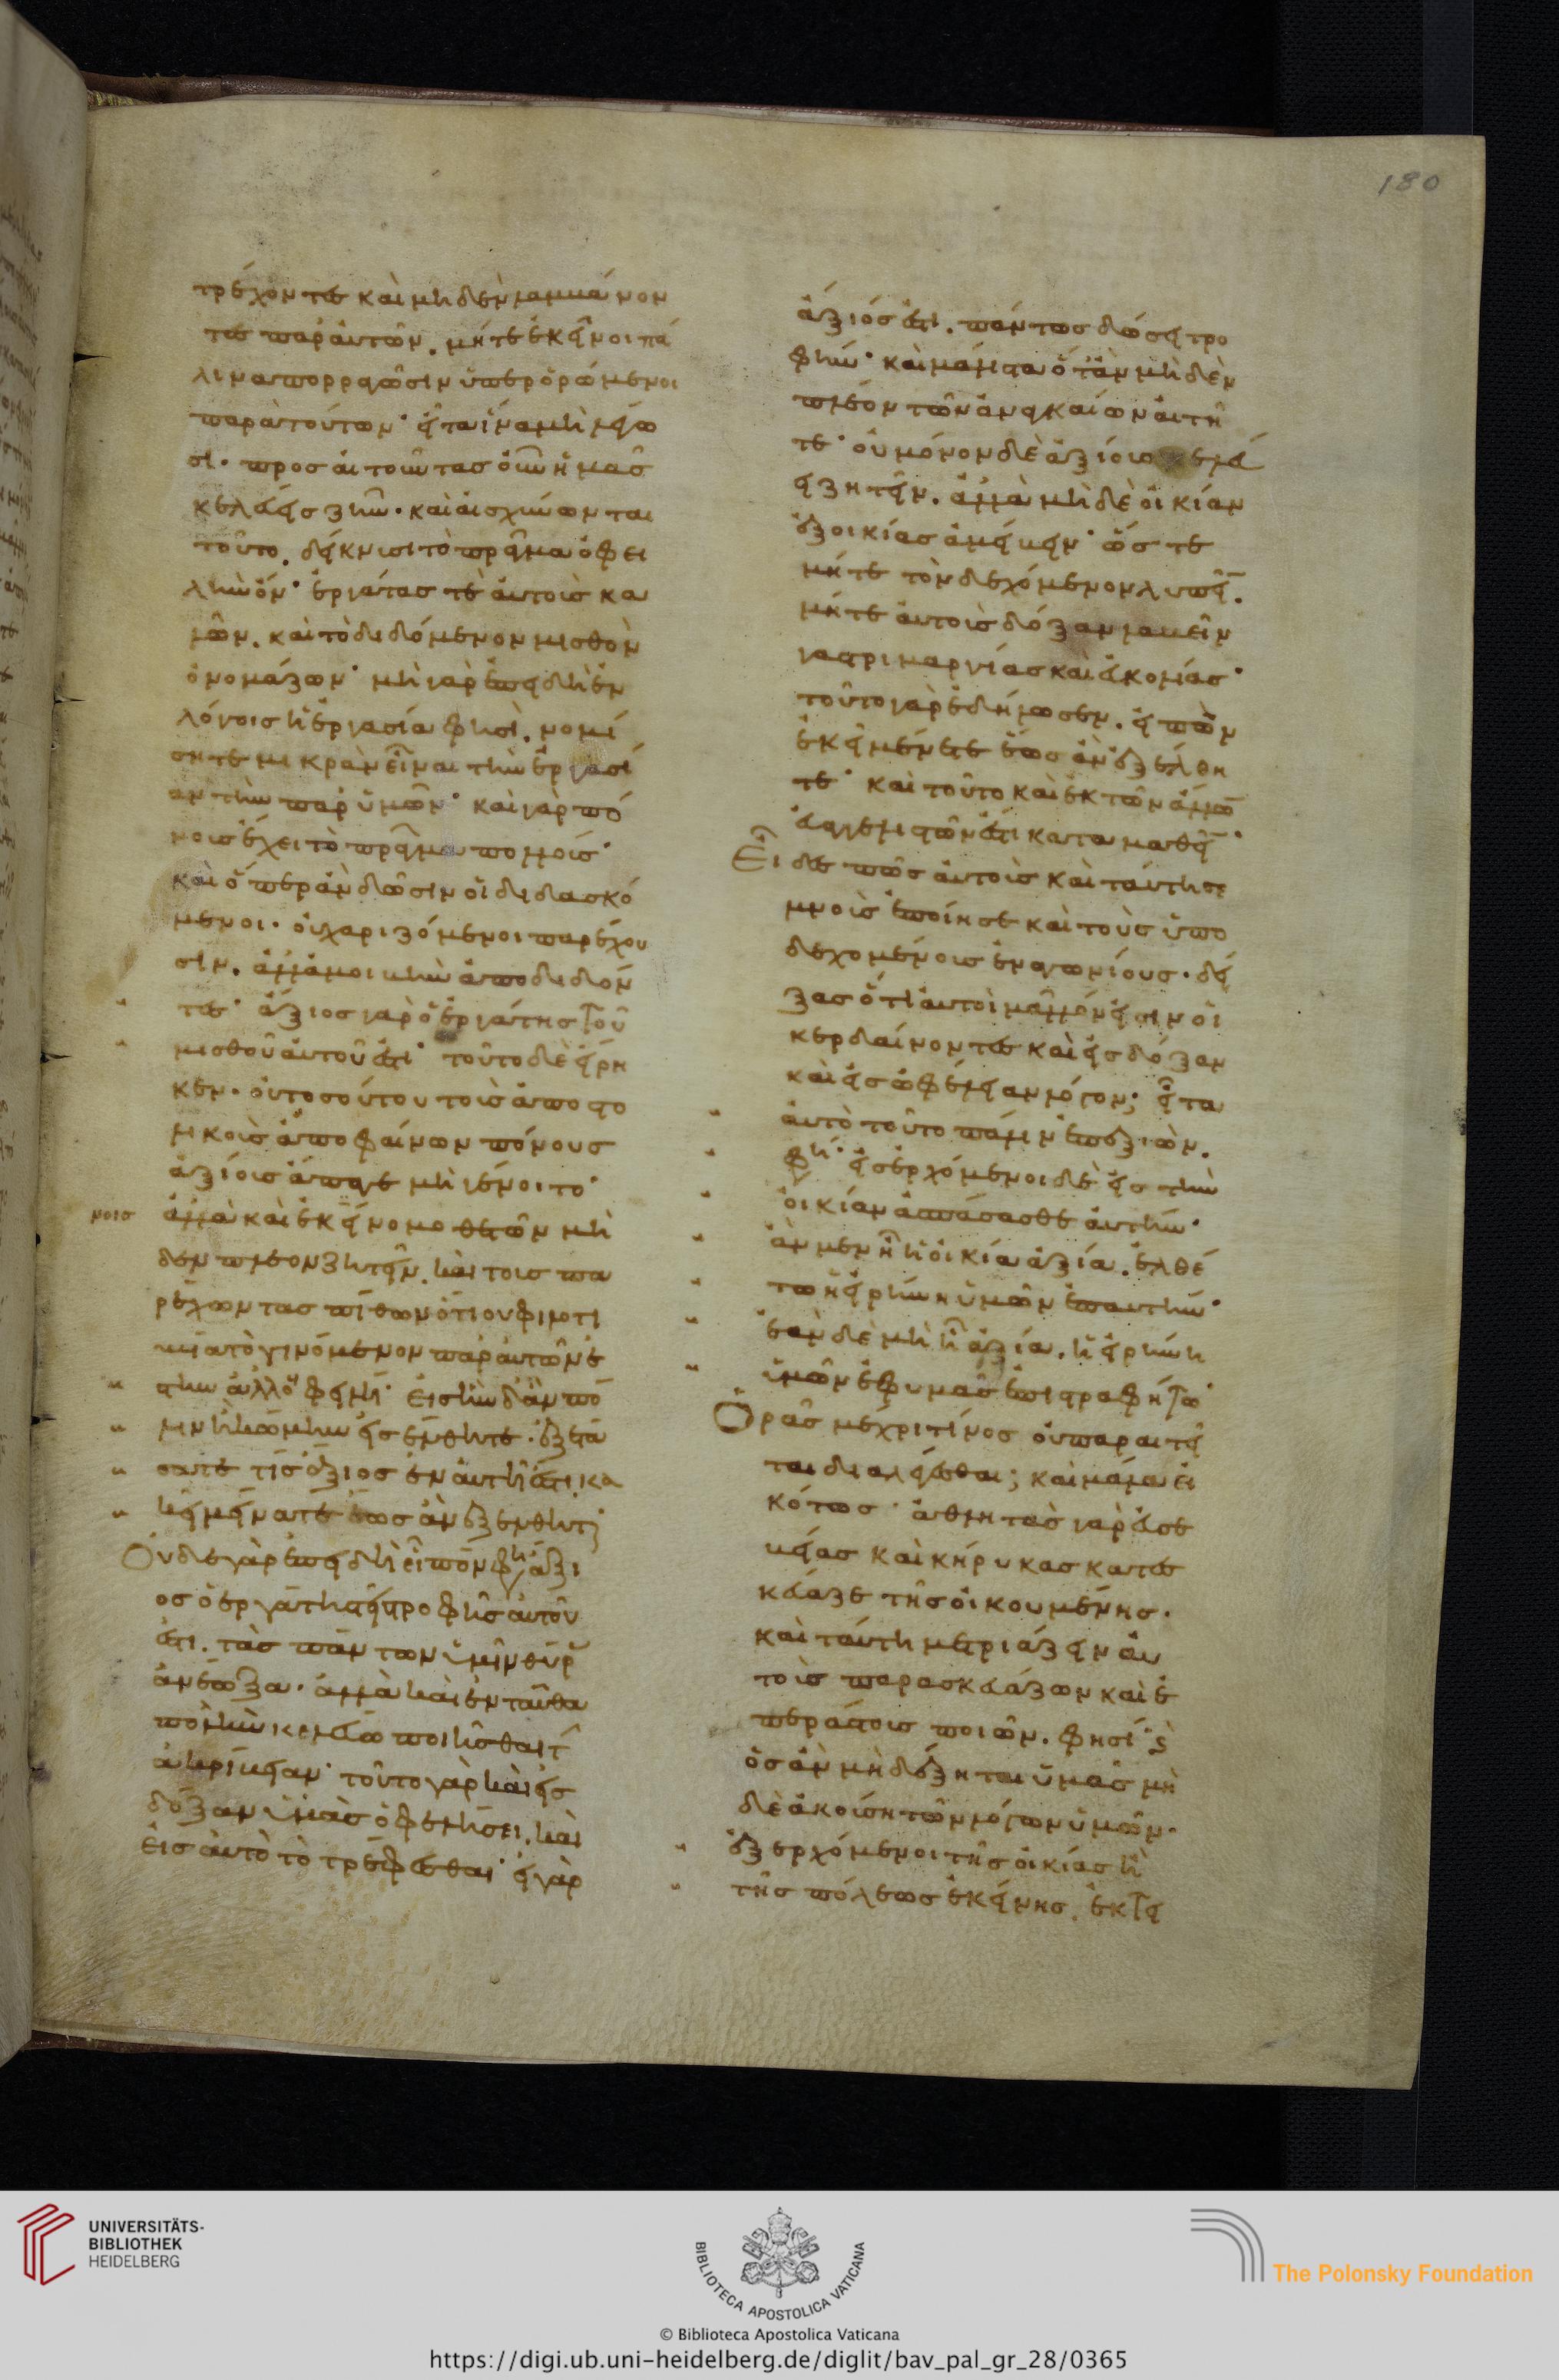 τρέχοντες καὶ μηδὲν λαμβάνον
τες παρ' αὐτῶν. μήτε ἐκεῖνοι πά
λιν ἀπορραγῶσιν ὑπερορώμενοι
παρὰ τούτων· εἶτα ἵνα μὴ λέγω
σι· προσαιτοῦντας οὖν ἡμᾶς
κελεύεις ζῆν· καὶ αἰσχύνωνται
τοῦτο. δείκνυσι τὸ πρᾶγμα ὀφει
λὴν ὄν· ἐργάτας τὲ αὐτοὺς κα
λῶν. καὶ τὸ διδόμενον μισθὸν
ὀνομάζων· μὴ γὰρ ἐπειδὴ ἐν
λόγοις ἡ ἐργασία φησὶ. νομί
σητε μικρὰν εἶναι τὴν ἐργασί
αν τὴν παρ' ὑμῶν· καὶ γὰρ πό
νους ἔχει τὸ πρᾶγμα πολλούς·
καὶ ὅπερ ἂν δῶσιν οἱ διδασκό
μενοι· οὐ χαριζόμενοι παρέχου
σιν. ἀλλ' ἀμοιβὴν ἀποδιδόν
τες· ἄξιος γὰρ ὁ ἐργάτης τοῦ
μισθοῦ αὐτοῦ ἐστι· τοῦτο δὲ εἴρη
κεν· οὐ τοσούτου τοὺς ἀποστο
λικοὺς ἀποφαίνων πόνους
ἀξίους ἄπαγε μὴ γένοιτο·
νοις ἀλλὰ καὶ ἐκείνο μοθετῶν μὴ
δεν πλέον ζητεῖν. καὶ τους πα
ρέχωντας πίθων ὅτι οὐ φιλοτι
μία τὸ γινόμενον παρ' αὐτῶν ἐ
στιν ἀλλ' ὀφειλή· εἰς ἣν δ' ἂν πό
λιν ἢ κώμην εἰσένθητε. ἐξετά
σατε τίς ἄξιος ἐν αὐτῇ ἐστι. κα
κεῖ μείνατε ἕως ἂν ἐξένθητε·
Οὐδε γὰρ ἐπειδὴ εἶπόν φη ἄξι
ος ὁ ἐργάτης τροφῆς αὐτοῦ
ἐστι. τὰς πάντων ὑμῖν θύρας
ἀνέωξα· ἀλλὰ καὶ ἐνταῦθα
πολλὴν κελεύω ποιῆσθαι τὴν
ἀκρίβειαν· τοῦτο γὰρ καὶ εἰς
δόξαν ὑμᾶς ὀφελήσει. καὶ
εἰς αὐτὸ τὸ τρέφεσθαι· εἰ γὰρ
ἄξιός ἐστι. πάντως δώσει τρο
φήν· καὶ μάλιστα ὅταν μὴ δὲν
πλέον τῶν ἀναγκαίων αἰτῆ
τε· οὐ μόνον δὲ ἀξίους κελεύ
ει ζητεῖν. ἀλλὰ μὴ δὲ οἰκίαν
ἐξ οἰκίας ἀμείβειν· ὥστε
μήτε τὸν δεχόμενον λυπεῖν.
μήτε αὐτοὺς δόξαν λαβεῖν
γαστριμαργίας καὶ εὐκολίας·
τοῦτο γὰρ ἐδήλωσεν. εἰπὼν
ἐκεῖ μένετε ἕως ἂν ἐξέλθη
τε· καὶ τοῦτο καὶ ἐκ τῶν ἄλλων
εὐαγγελιστῶν ἐστι καταμαθεῖν·
Εἶδες πῶς αὐτοὺς καὶ ταύτη σε
μνοὺς ἐποίησε καὶ τοὺς ὑπο
δεχομένους ἐναγωνίους· δεί
ξας ὅτι αὐτοὶ μᾶλλόν εἰσιν οἱ
κερδαίνοντες καὶ εἰς δόξαν
καὶ εἰς ὠφέλειαν λόγον; εἶτα
αὐτὸ τοῦτο πάλιν ἐπεξιὼν.
φη· εἰσερχόμενοι δὲ εἰς τὴν
οἰκίαν ἀσπάσασθε αὐτήν·
ἂν μὲν ᾖ ἡ οἰκία ἀξία. ἐλθέ
τω ἡ εἰρήνη ὑμῶν ἐπ' αὐτήν·
ἐὰν δὲ μὴ ᾖ ἀξία. ἡ εἰρήνη
ὑμῶν ἐφ' ὑμᾶς ἐπιστραφήτω·
Ὁρᾶς μέχρι τίνος οὐ παραιτεῖ
ται διαλεχθαι; καὶ μάλα εἰ
κότως· ἀθλητὰς γὰρ εὐσε
βείας καὶ κήρυκας κατεσ
κεύαζε τῆς οἰκουμένης.
καὶ ταύτη μετριάζειν αὐ
τοὺς παρασκευάζων καὶ ἐ
περάστους ποιῶν. φησί·
ὃς ἂν μὴ δέξηται ὑμᾶς μὴ
δὲ ἀκούση τῶν λόγων ὑμῶν·
ἐξερχόμενοι τῆς οἰκίας ἢ
τῆς πόλεως ἐκείνης. ἐκτι
180
UNIVERSITÄTS-
BIBLIOTHEK
HEIDELBERG
BIBLIOTECA APOSTOLICA VATICANA
The Polonsky Foundation
© Biblioteca Apostolica Vaticana
https://digi.ub.uni-heidelberg.de/diglit/bav_pal_gr_28/0365